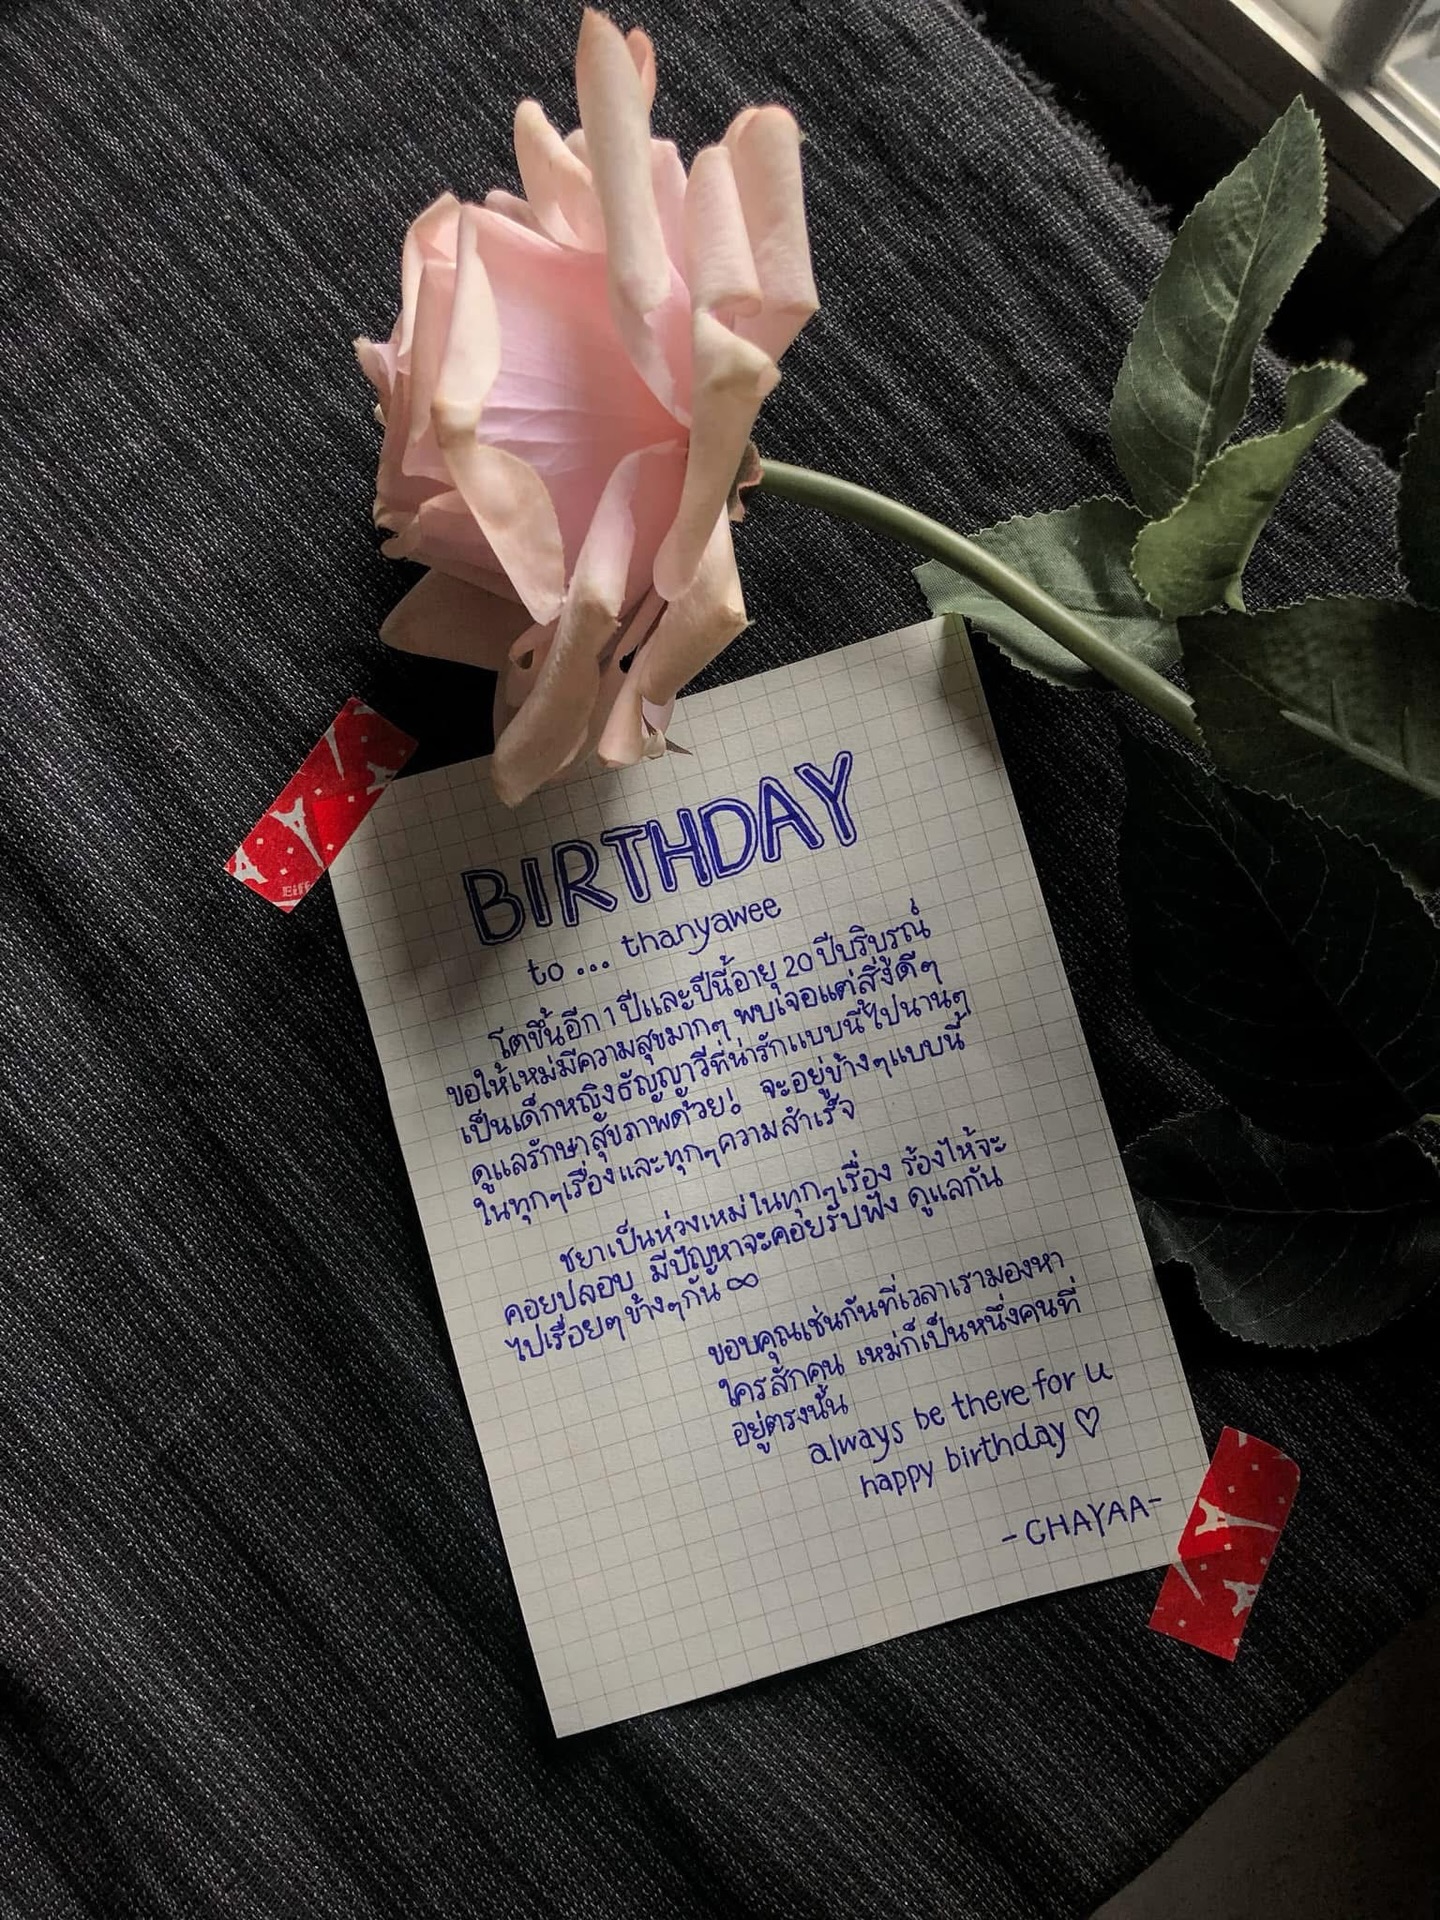 BIRTHDAY
to ... thanyawee
โตขึ้นอีก 1 ปีและปีนี้อายุ 20 ปีบริบูรณ์
ขอให้เหม่มีความสุขมากๆ พบเจอแต่สิ่งดีๆ
เป็นเด็กหญิงธัญญาวีที่น่ารักแบบนี้ไปนานๆ
ดูแลรักษาสุขภาพด้วย! จะอยู่ข้างๆแบบนี้
ในทุกๆเรื่องและทุกๆความสำเร็จ
ชยาเป็นห่วงเหม่ในทุกๆเรื่อง ร้องไห้จะ
คอยปลอบ มีปัญหาจะคอยรับฟัง ดูแลกัน
ไปเรื่อยๆข้างๆกัน ∞
ขอบคุณเช่นกันที่เวลาเรามองหา
ใครสักคน เหม่ก็เป็นหนึ่งคนที่
อยู่ตรงนั้น
always be there for u
happy birthday ♡
-CHAYAA-
Eiff